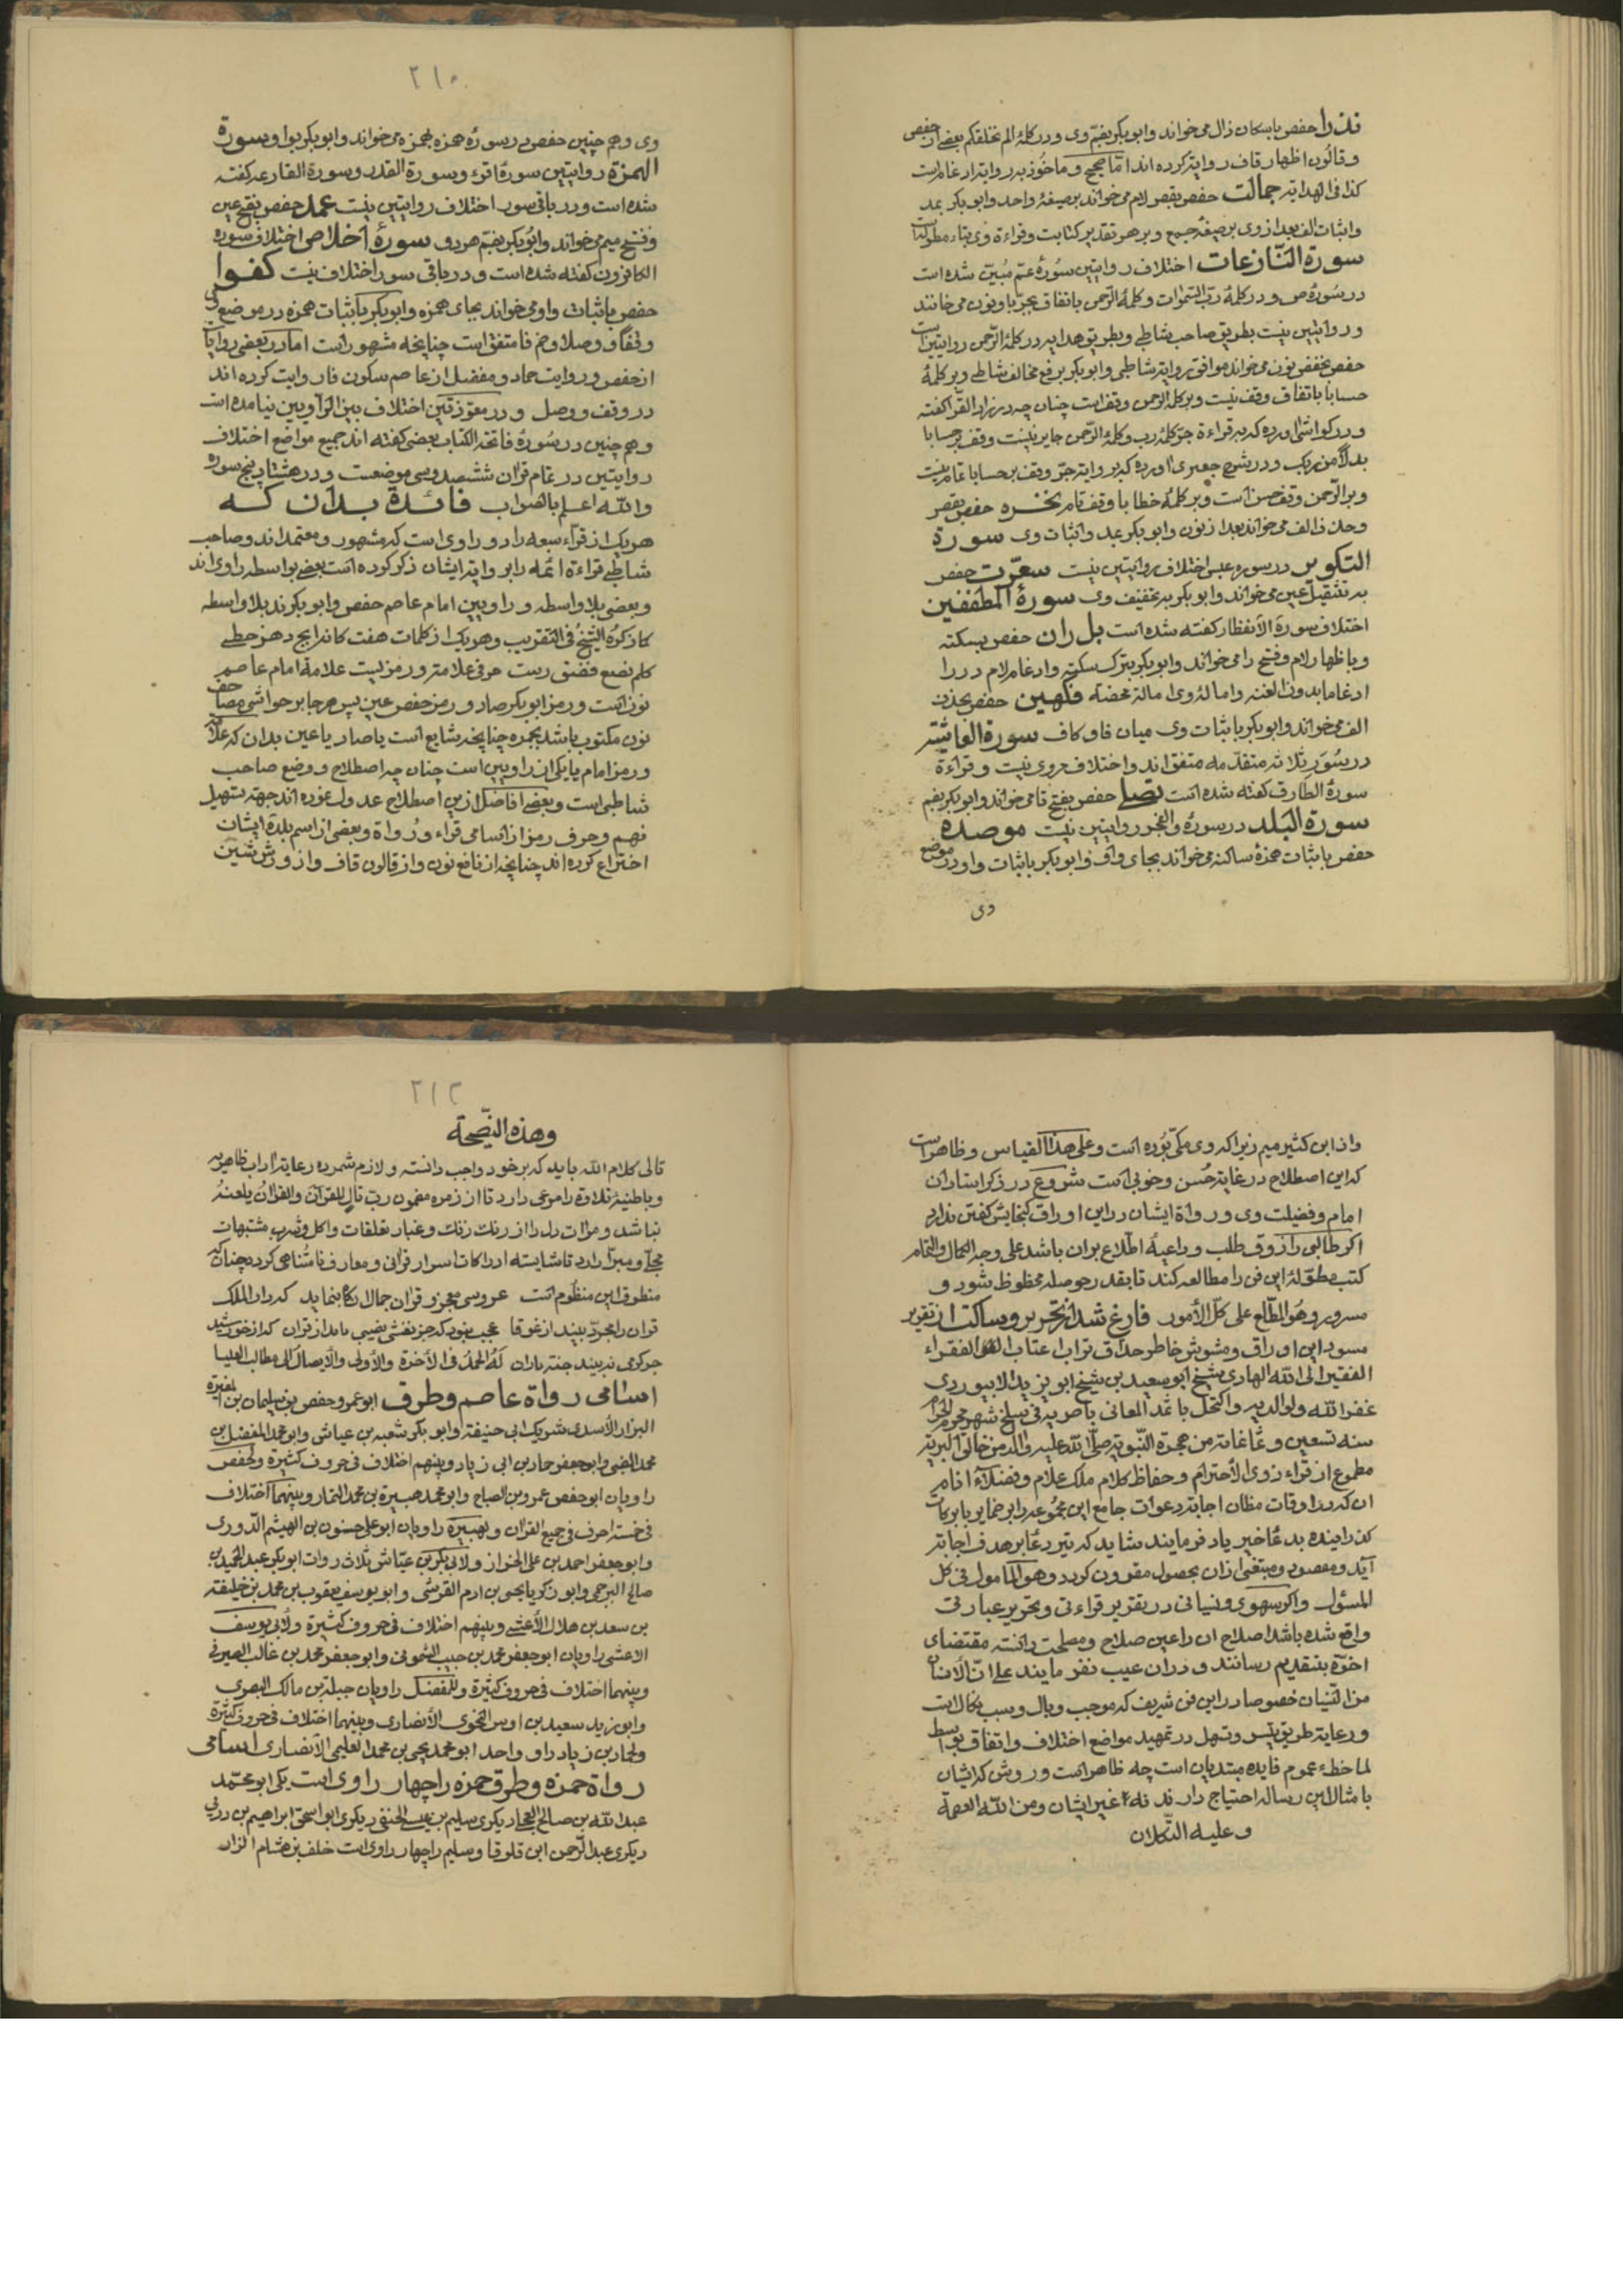 نذرا حفص باسکان ذال می‌خواند وابوبکر بضم وی ودر کلمهٔ الم نخلقکم بعضی از حفص
وقالون اظهار قاف روایت کرده اند اما صحیح وماخوذ به در روایت ادغام است
کذا فی الهدایة جمالت حفص بقصر لام می‌خواند بر صیغهٔ واحد وابوبکر بمد
واثبات الف بعد از وی بر صیغهٔ جمع وبر هر تقدیر کتابت وقراءة وی بتاء مطوله است
سورة النّازعات اختلاف روایتین سورهٔ عم مبین شده است
در سورهٔ ص ودر کلمهٔ ربّ السّموات وکلمهٔ الرّحمن باتفاق بجر با ونون می خوانند
ودر روایتین نیست بطریق صاحب شاطبی وبطریق هدایه در کلمهٔ الرّحمن روایتین است
حفص بخفض نون می‌خواند موافق روایت شاطبی وابوبکر برفع مخالف شاطبی وبر کلمهٔ
حسابا باتفاق وقف نیست وبر کلمهٔ الرحمن وقف است چنان چه در نزاد القرّا کفته
ودر کواشی اورده که به قراءة جر کلمهٔ رب وکلمهٔ الرّحمن جایز نیست وقف بر حسابا
بدلا من ربک ودر شرح جعبری اورده که بر روایت جر وقف بر حسابا تمام نیست
وبر الرّحمن وقف حسن است وبر کلمهٔ خطابا وقف تام نخره حفص بقصر
وحذف الف می‌خواند بعد از نون وابوبکر بمد واثبات وی سورة
التکویر در سوره عبس اختلاف روایتین نیست سعّرت حفص
به تثقیل عین می‌خواند وابوبکر به تخفیف وی سورة المطففین
اختلاف سورة الانفطار کفته شده است بل ران حفص بسکته
وباظهار لام وفتح را می‌خواند وابوبکر بترک سکته وادغام لام در را
ادغاما بدون الغنه واماله وی اماله محضه فکهین حفص بحذف
الف می‌خواند وابوبکر باثبات وی میان فا وکاف سورة الغاشیة
در سور ثلاثه متقدّمه متفق اند واختلاف مروی نیست وقراءة
سورة الطارق کفته شده است تصلی حفص بفتح تا می‌خواند وابوبکر بضم
سورة البلد در سورهٔ والفجر روایتین نیست موصدة
حفص باثبات همزهٔ ساکنه می‌خواند بجای واو وابوبکر باثبات واو در موضع
وی
۲۱۰
وی وهم چنین حفص در سورهٔ همزه بهمزه می‌خواند وابوبکر بواو سورة
الهمزة روایتین سورهٔ اقرء وسورة القدر وسورة القارعه کفته
شده است ودر باقی سور اختلاف روایتین نیست عمد حفص بفتح عین
وفتح میم می‌خواند وابوبکر بضم هر دو سورهٔ اخلاص اختلاف سوره
الکافرون کفته شده است ودر باقی سور اختلاف نیست کفوا
حفص باثبات واو می‌خواند بجای همزه وابوبکر باثبات همزه در موضع وی
وقفا ووصلا وضم فا متفق است چنانچه مشهور است اما در بعضی روایات
از حفص ودر روایت حماد ومفضل از عاصم سکون فا روایت کرده اند
در وقف ووصل ودر معوّذتین اختلاف بین الراویین نیامده است
وهم چنین در سورهٔ فاتحة الکتاب بعضی کفته اند جمیع مواضع اختلاف
روایتین در تمام قران ششصد وسی موضعست ودر هشتاد پنج سوره
والله اعلم بالصواب فائدة بدان که
هر یک از قراء سبعه را دو راوی است که مشهور ومعتمد اند وصاحب
شاطبی قراءة ائمه را بروایت ایشان ذکر کرده است بعضی بواسطه راوی اند
وبعضی بلا واسطه وراویین امام عاصم حفص وابوبکرند بلا واسطه
کما ذکره الشیخ فی التقریب وهر یک از کلمات هفت کانه ابج دهز حطی
کلم نصع فضق رست حرفی علامت ورمزیست علامة امام عاصم
نون است ورمز ابوبکر صاد ورمز حفص عین پس هر جا بر حواشی مصاحف
نون مکتوب باشد بحمره چنانچه شایع است یا صاد یا عین بدان که علامت
ورمز امام یا یکی از راویین است چنان چه اصطلاح ووضع صاحب
شاطبی است وبعضی افاضل ازین اصطلاح عدول نموده اند جهت تسهیل
فهم وحرف رمز از اسامی قراء ورواة وبعضی از اسم بلدهٔ ایشان
اختراع کرده اند چنانچه از نافع نون واز قالون قاف واز ورش شین
واز ابن کثیر میم زیرا که وی مکّی بوده است وعلی هذا القیاس وظاهر است
که این اصطلاح در غایة حسن وخوبی است شروع در ذکر استادان
امام وفضیلت وی ورواة ایشان در این اوراق کنجایش کفتن ندارد
اکر طالبی را ذوق طلب وداعیهٔ اطلاع بران باشد علی وجه الکمال والتمام
کتب مطوّلهٔ این فن را مطالعه کند تا بقدر حوصله محظوظ شود و
مسرور وهو المطّلع علی کلّ الأمور فارغ شد از تحریر وساکت از تقریر
مسود این اوراق ومشوش خاطر حذاق تراب اعتاب الفقراء
الفقیر الی الله الهادی شیخ ابوسعید بن شیخ ابو یزید الابیوردی
غفر الله ولوالدیه واکتحل باثمد المعانی باصریه فی سلخ شهر محرم الحرام
سنه تسعین وثمانمائة من هجرة النّبویة صلّی الله علیه واله من خالق البریة
مطموع از قراء ذوی الأحترام وحفاظ کلام ملک علام وفضلاء انام
ان که در اوقات مظان اجابة دعوات جامع این مجموعه را
کذرانیده بدعا خیر یاد فرمایند شاید که تیر دعا بر هدف اجابة
آید ومقصود ومبتغی ازان بحصول مقرون کردد وهو المامول فی کل
المسئول واکر سهوی ونسیانی در تقریر قراءتی وتحریر عبارتی
واقع شده باشد اصلاح ان را عین صلاح ومصلحت دانسته مقتضای
اخوّة بتقدیم رسانند ودران عیب نفرمایند علی انّ الانسان
من النّسیان خصوصا در این فن شریف که موجب وبال وسبب نکال است
ورعایة طریق تیسیر وتسهل در تمهید مواضع اختلاف واتفاق بواسطه
لماحظهٔ عموم فایده مبتدیان است چه ظاهر است وروشن که ایشان
بامثال این رساله احتیاج دارند نه غیر ایشان ومن الله العصمة
وعلیه التّکلان
۲۱۲
وهذه النّصیحة
تالی کلام الله باید که بر خود واجب دانسته ولازم شمرده رعایة اداب ظاهریه
وباطنیهٔ تلاوة را مرعی دارد تا از زمره مضمون ربّ تال للقرآن والقران یلعنه
نباشد ومرات دل را از رنک زنک وغبار تعلقات واکل وشرب مشتبهات
مجلّا ومبرّا دارد تا شایسته ادراکات اسرار قرانی ومعارف نامتناهی کردد چنان که
منطوق این منظوم است عروس معجز قران جمال انکه بنماید که دار الملک
قران را مجرّد بیند از غوغا عجب نبود که جز نقشی نصیبی نامد از قران که از خورشید
جز کرمی نه بیند جشم نابینا له الحمد فی الأخرة والأولی والأیصال الی مطالب العلیا
اسامی رواة عاصم وطرق ابو عمرو حفص بن سلیمان بن المغیرة
البزاز الأسدی شریک ابی حنیفة وابو بکر شعبه بن عیاش وابو محمد المفضل بن
محمد الضبی وابو جعفر حماد بن ابی زیاد وبینهم اختلاف فی حروف کثیرة ولحفص
راویان ابو حفص عمرو بن الصباح وابو محمد هبیرة بن محمد التمار وبینهما اختلاف
فی خمسة احرف فی جمیع القران ولهبیرة راویان ابو علی حسنون بن الهیثم الدّوری
وابو جعفر احمد بن علی الخزاز ولابی بکر بن عیّاش ثلاث روات ابو بکر عبد الحمید بن
صالح البرجمی وابو زکریا یحیی بن ادم القرشی وابو یوسف یعقوب بن محمد بن خلیفة
بن سعد بن هلال الأعشی وبینهم اختلاف فی حروف کثیرة ولأبی یوسف
الاعشی راویان ابو جعفر محمد بن حبیب الشمونی وابو جعفر محمد بن غالب الصیرفی
وبینهما اختلاف فی حروف کثیرة وللمفضل راویان جبلة بن مالک البصری
وابو زید سعید بن اوس النحوی الأنصاری وبینهما اختلاف فی حروف کثیرة
ولحماد بن زیاد راو واحد ابو محمد یحیی بن محمد العلیمی الأنصاری اسامی
رواة حمزه وطرق حمزه را چهار راوی است یکی ابو محمّد
عبد الله بن صالح العجلی دیکری سلیم بن عیسی الحنفی دیکری ابو اسحق ابراهیم بن زربی
دیکری عبد الرّحمن ابن قلوقا وسلیم را چهار راوی است خلف بن هشام البزار